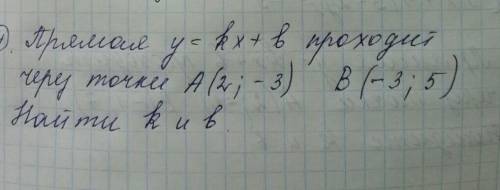 1). Прямая y = kx + b проходит
через точки A(2; -3) B(-3; 5)
Найти k и b.